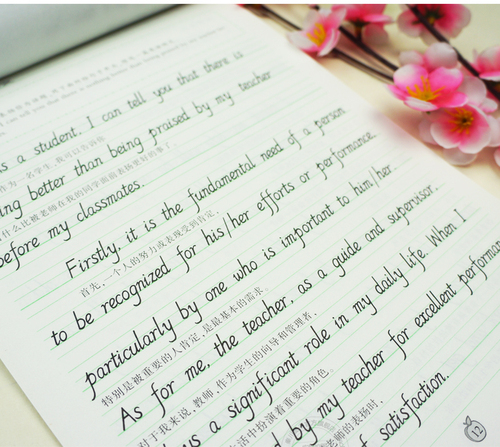 s a student, I can tell you that there is
作为一名学生,我可以告诉你
ing better than being praised by my teacher
什么比被老师在我的同学面前表扬更好的事了。
before my classmates.
Firstly, it is the fundamental need of a person
首先,一个人的努力或表现受到肯定,
to be recognized for his/her efforts or performance.
particularly by one who is important to him/her.
特别是被重要的人肯定,是最基本的需求。
As for me, the teacher, as a guide and supervisor,
对于我来说,教师,作为学生的向导和管理者,
s a significant role in my daily life. When I
生活中扮演着重要的角色。
d by my teacher for excellent performa
老师的表扬时,
f satisfaction.
12